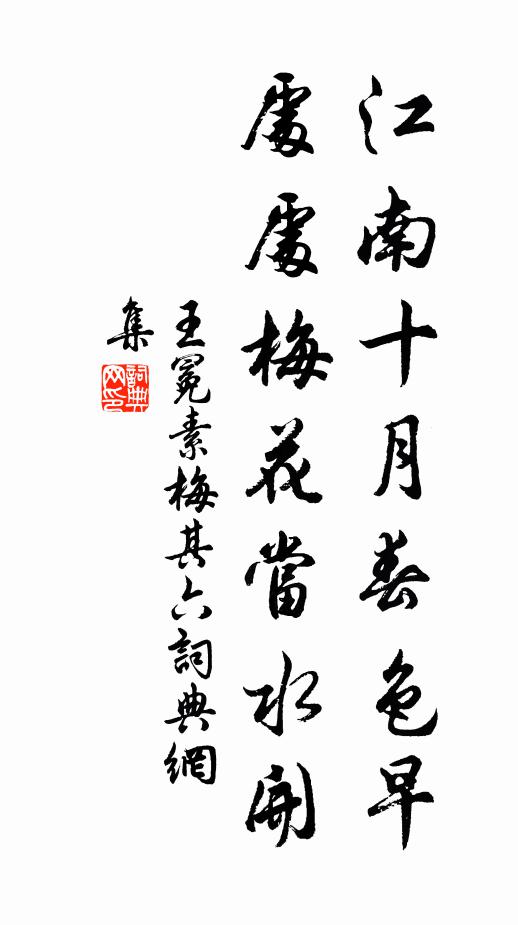 江南十月春色早
處處梅花當水開
王冕素梅其六詞典網
集
詞典
网印